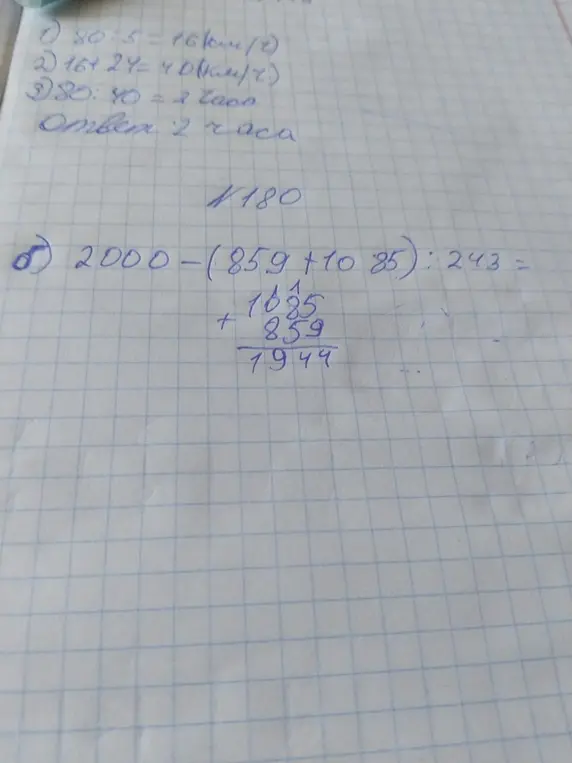 1) 80 : 5 = 16 (км/ч)
2) 16 + 24 = 40 (км/ч)
3) 80 : 40 = 2 часа
Ответ: 2 часа
№180
б) 2000 - (859 + 1085) : 243 =
1 1
1085
+ 859
1944